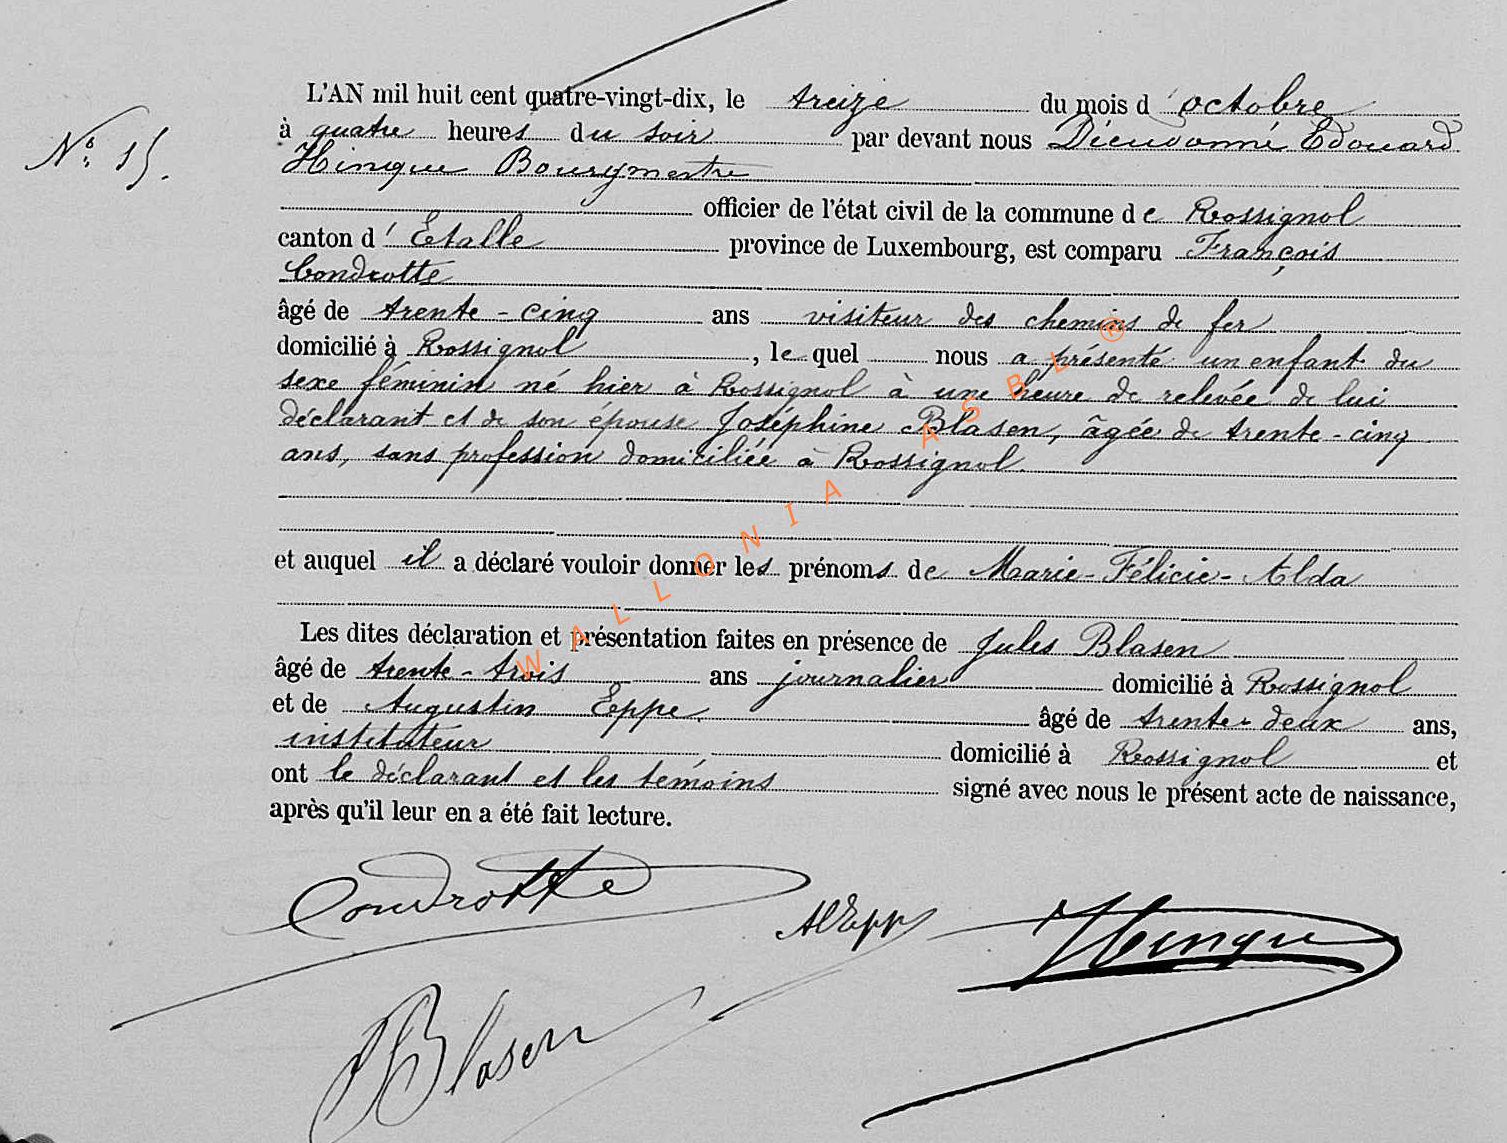 L'AN mil huit cent quatre-vingt-dix, le treize du mois d'octobre
N° 15.
à quatre heures du soir par devant nous Dieudonné Edouard
Hinque Bourgmestre
officier de l'état civil de la commune de Rossignol
canton d'Etalle province de Luxembourg, est comparu François
Condrotte
âgé de trente-cinq ans visiteur des chemins de fer
domicilié à Rossignol, lequel nous a présenté un enfant du
sexe féminin né hier à Rossignol à une heure de relevée de lui
déclarant et de son épouse Joséphine Blasen, âgée de trente-cinq
ans, sans profession domiciliée à Rossignol.
et auquel il a déclaré vouloir donner les prénoms de Marie-Félicie-Alda
Les dites déclaration et présentation faites en présence de Jules Blasen
âgé de trente-trois ans journalier domicilié à Rossignol
et de Augustin Eppe. âgé de trente-deux ans,
instituteur domicilié à Rossignol et
ont le déclarant et les témoins signé avec nous le présent acte de naissance,
après qu'il leur en a été fait lecture.
Condrotte
Hinque
Blasen
WALLONIA ASBL ®